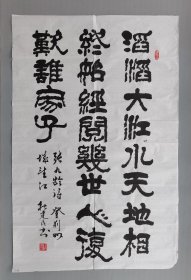 滔滔大江水天地相
終始經閱幾世人復
歎誰家子
張九齡詩登荆州
城望江